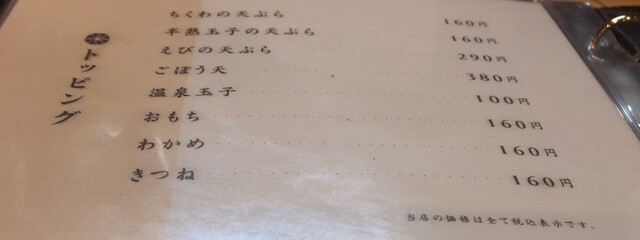 トッピング
ちくわの天ぷら 160円
半熟玉子の天ぷら 160円
えびの天ぷら 290円
ごぼう天 380円
温泉玉子 100円
おもち 160円
わかめ 160円
きつね 160円
当店の価格は全て税込表示です。